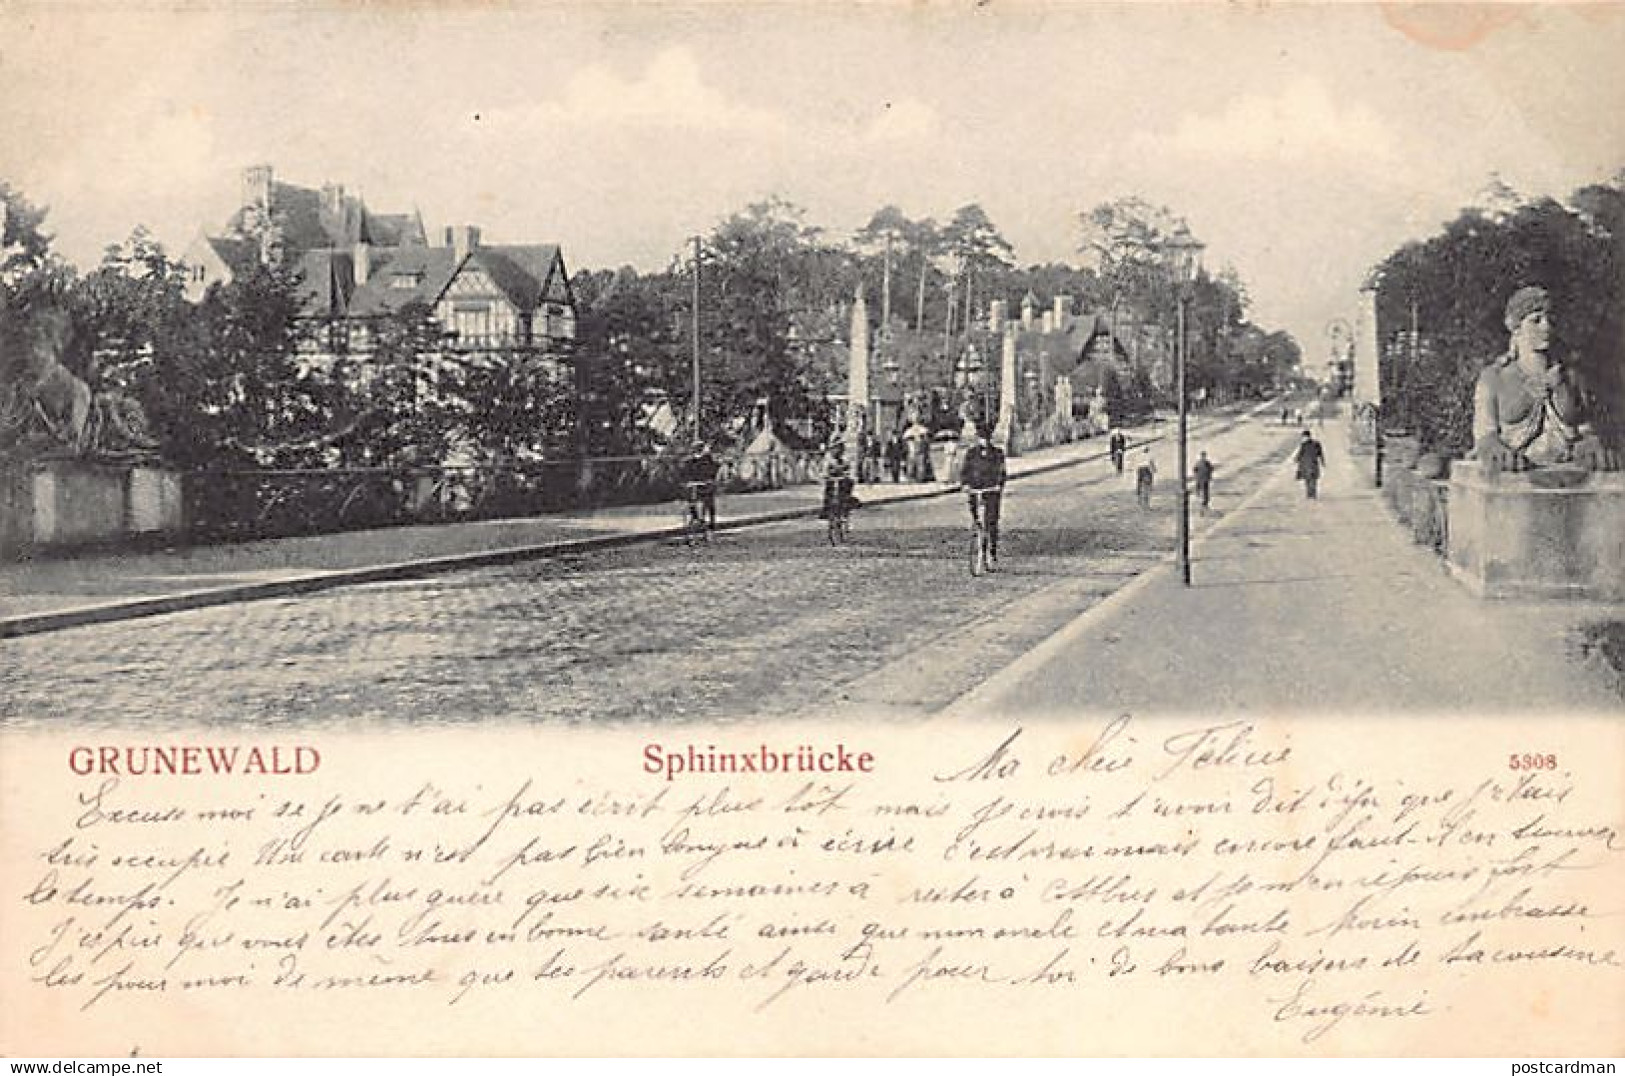 GRUNEWALD Sphinxbrücke 5308
Ma chère Félicie
Excuse moi se je ne t'ai pas écrit plus tôt mais je crois t'avoir dit déjà que j'étais
très occupée Une carte n'est pas bien longue à écrire c'est vrai mais encore faut-il en trouver
le temps. Je n'ai plus guère que six semaines à rester à et je m'en réjouis fort
J'espère que vous êtes tous en bonne santé ainsi que mon oncle et ma tante Morin embrasse
les pour moi de même que tes parents et garde pour toi de bons baisers de ta cousine
Eugénie.
postcardman
delcampe.net